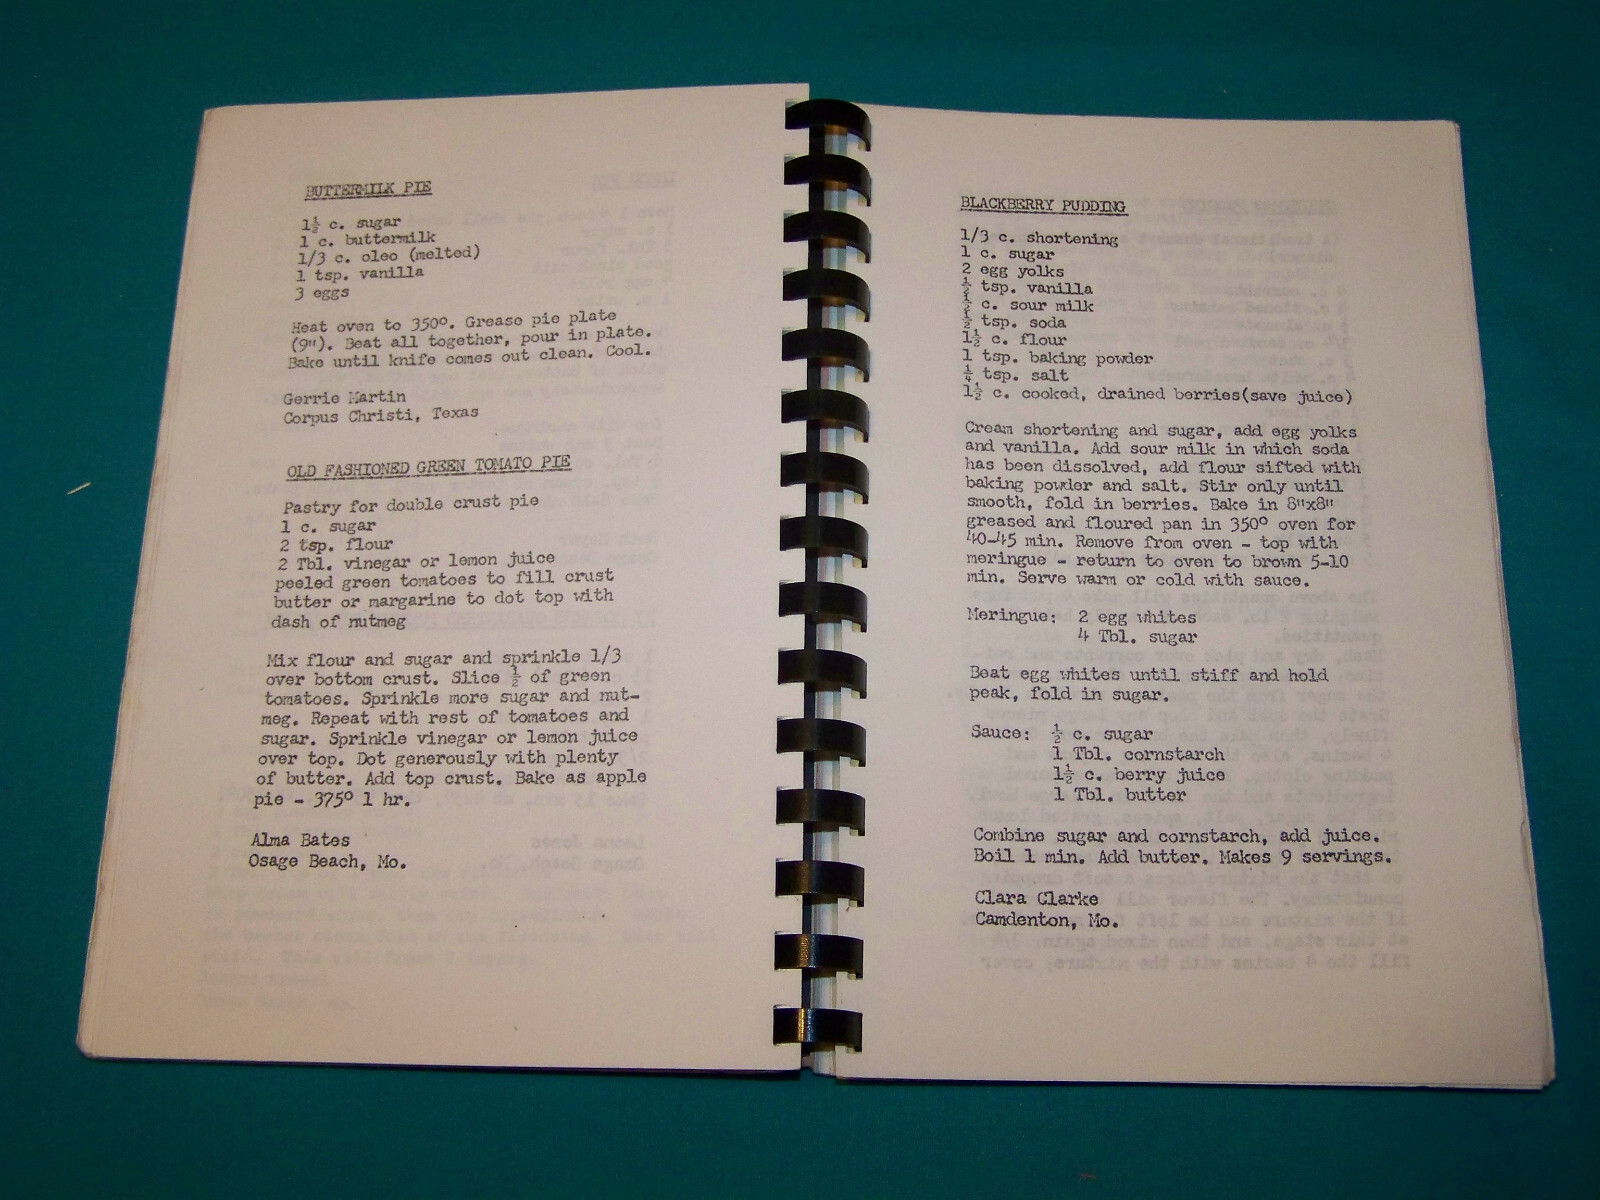 BUTTERMILK PIE
1½ c. sugar
1 c. buttermilk
1/3 c. oleo (melted)
1 tsp. vanilla
3 eggs
Heat oven to 350°. Grease pie plate
(9"). Beat all together, pour in plate.
Bake until knife comes out clean. Cool.
Gerrie Martin
Corpus Christi, Texas
OLD FASHIONED GREEN TOMATO PIE
Pastry for double crust pie
1 c. sugar
2 tsp. flour
2 Tbl. vinegar or lemon juice
peeled green tomatoes to fill crust
butter or margarine to dot top with
dash of nutmeg
Mix flour and sugar and sprinkle 1/3
over bottom crust. Slice ½ of green
tomatoes. Sprinkle more sugar and nut-
meg. Repeat with rest of tomatoes and
sugar. Sprinkle vinegar or lemon juice
over top. Dot generously with plenty
of butter. Add top crust. Bake as apple
pie - 375° 1 hr.
Alma Bates
Osage Beach, Mo.
BLACKBERRY PUDDING
1/3 c. shortening
1 c. sugar
2 egg yolks
½ tsp. vanilla
½ c. sour milk
½ tsp. soda
1½ c. flour
1 tsp. baking powder
¼ tsp. salt
1½ c. cooked, drained berries(save juice)
Cream shortening and sugar, add egg yolks
and vanilla. Add sour milk in which soda
has been dissolved, add flour sifted with
baking powder and salt. Stir only until
smooth, fold in berries. Bake in 8"x8"
greased and floured pan in 350° oven for
40-45 min. Remove from oven - top with
meringue - return to oven to brown 5-10
min. Serve warm or cold with sauce.
Meringue: 2 egg whites
4 Tbl. sugar
Beat egg whites until stiff and hold
peak, fold in sugar.
Sauce: ½ c. sugar
1 Tbl. cornstarch
1½ c. berry juice
1 Tbl. butter
Combine sugar and cornstarch, add juice.
Boil 1 min. Add butter. Makes 9 servings.
Clara Clarke
Camdenton, Mo.